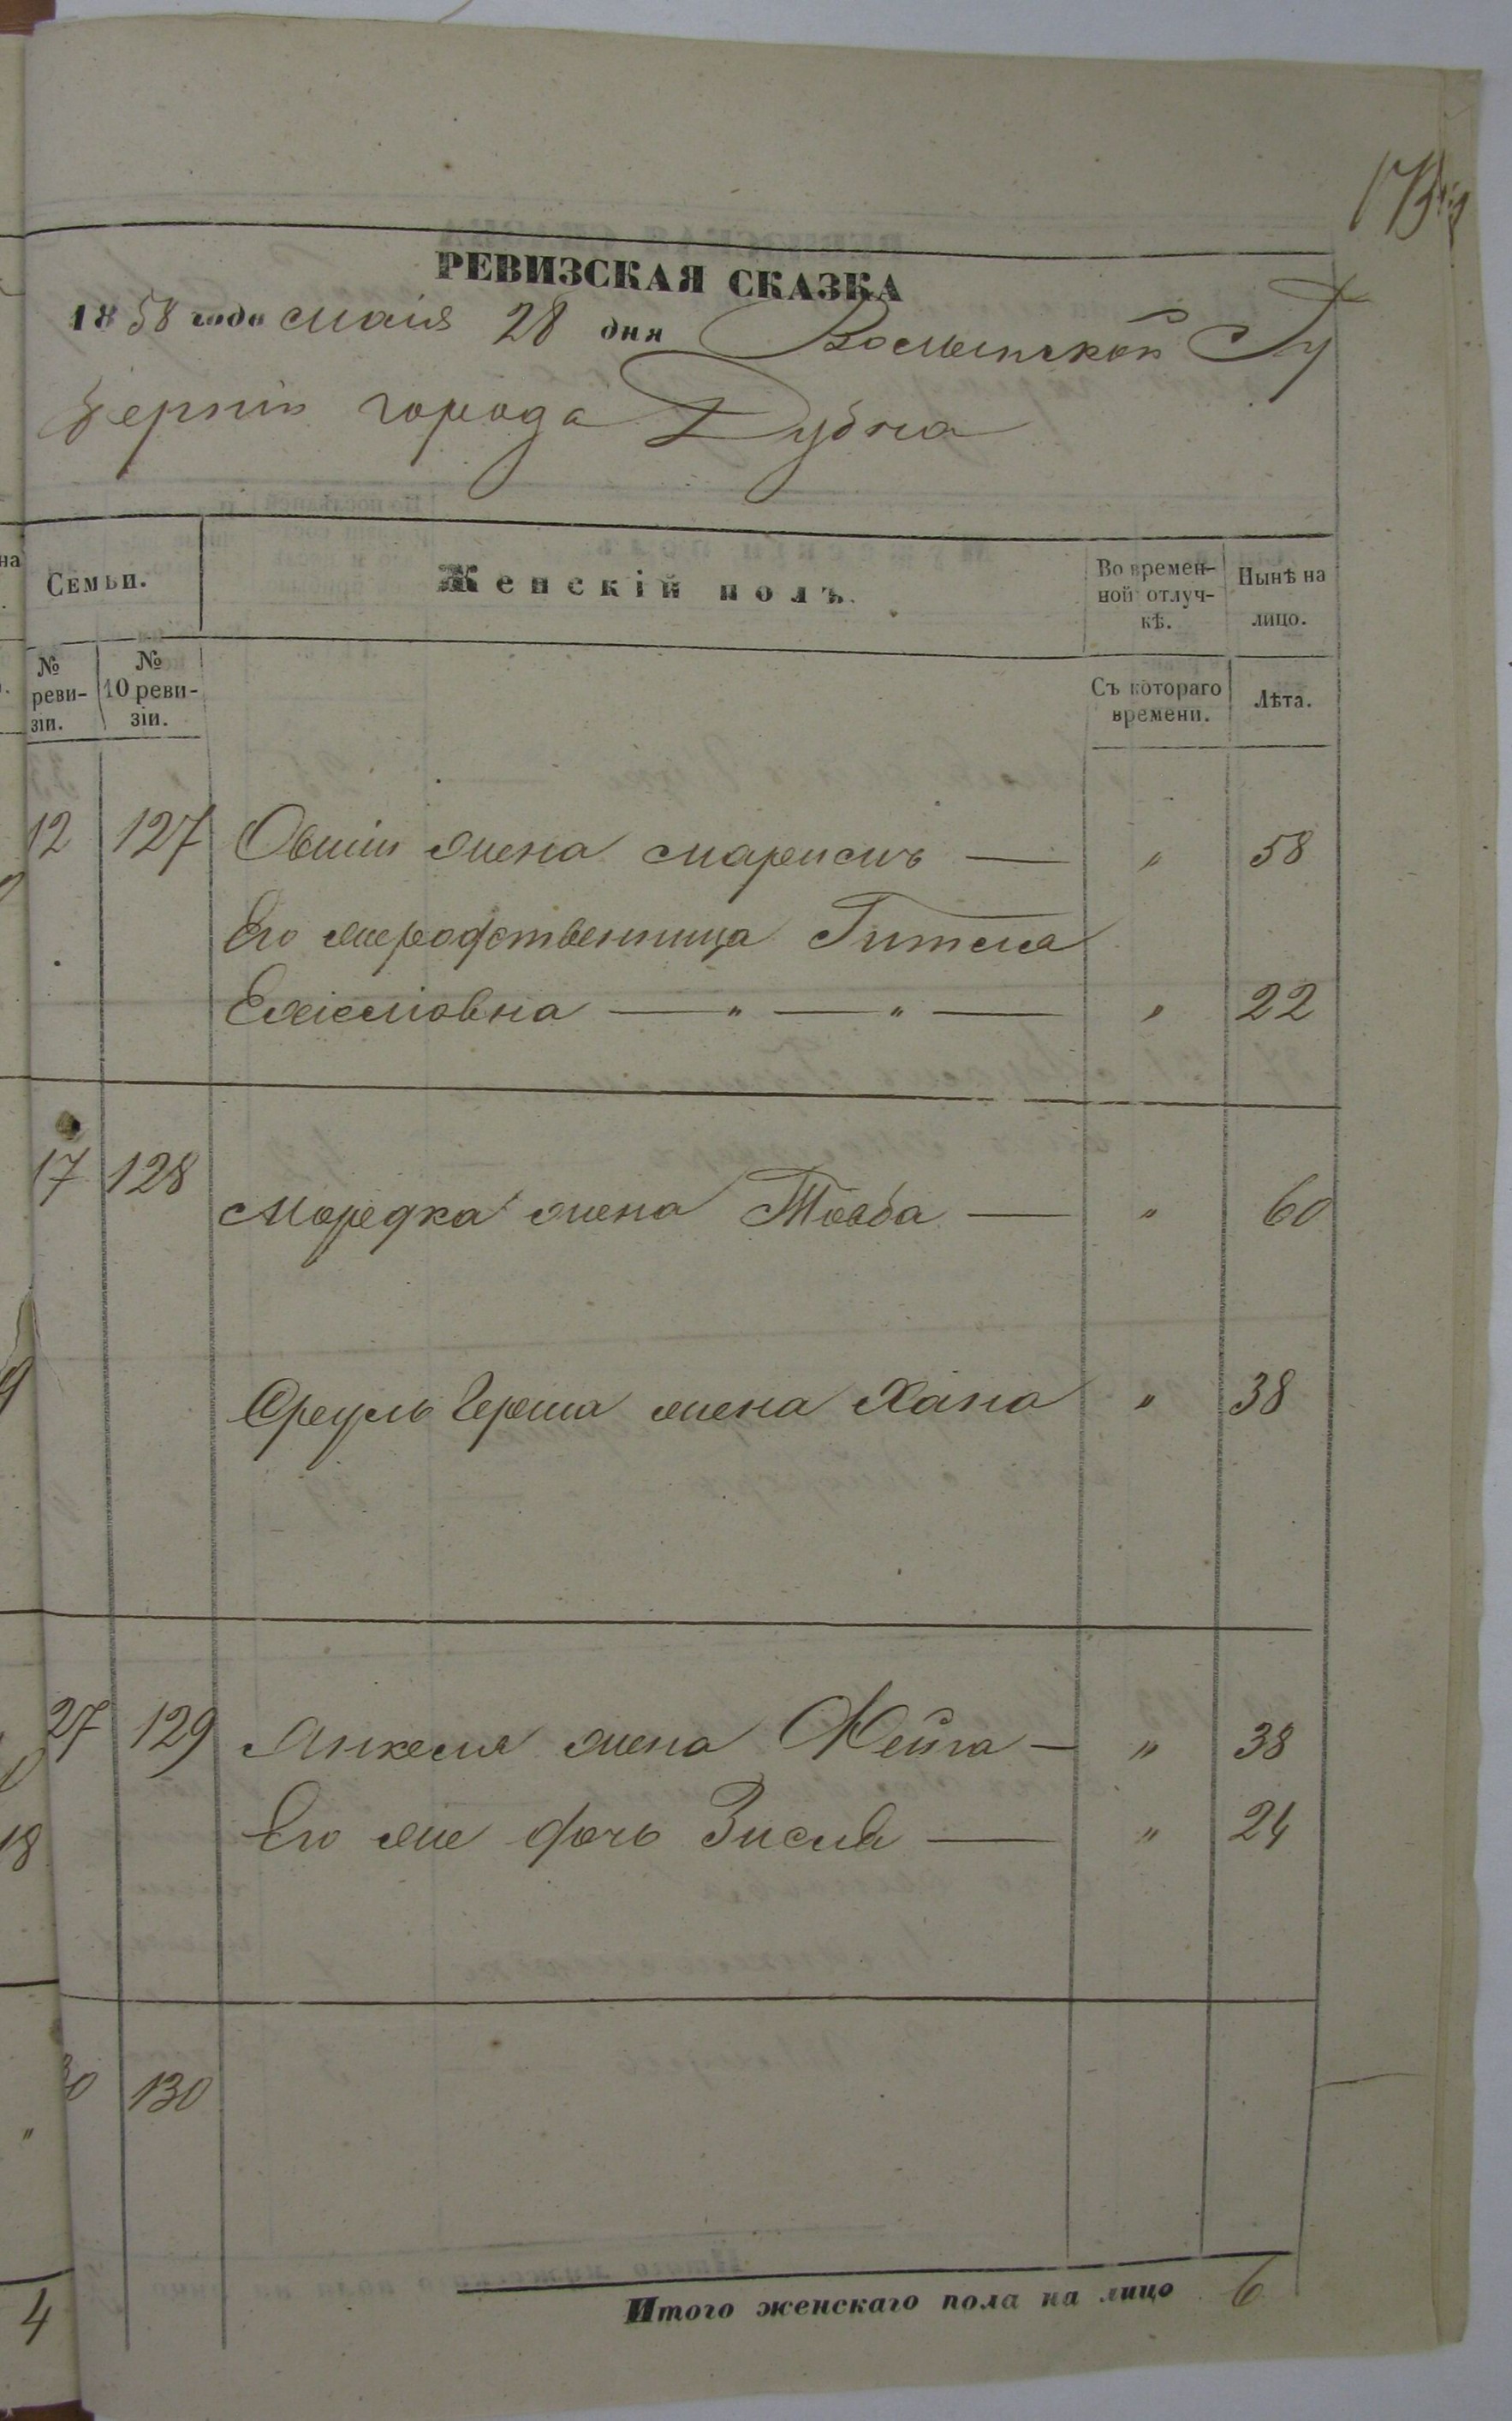 РЕВИЗСКАЯ СКАЗКА
1858 года маія 28 дня Волынской Гу
берніи города Дубна
Семьи.
Женскій полъ.
Во времен-
ной отлуч-
кѣ.
Нынѣ на
лицо.
№
реви-
зіи.
№
10 реви-
зіи.
Съ котораго
времени.
Лѣта.
12 127 Овшіи жена Маріясъ — " 58
Его же родственница Гителя
— " — " — " 22
17 128 Мордка жена Тоэба — " 60
Срець Герша жена Хана " 38
27 129 Янкеля жена Жейга — " 38
Его же дочь Зисля — " 24
30 130
Итого женскаго пола на лицо 6
18
4